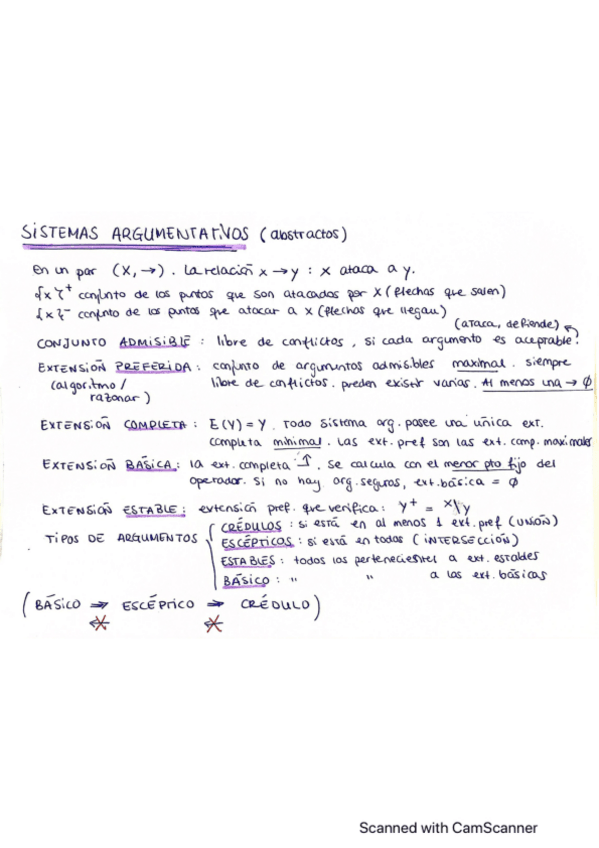 SISTEMAS ARGUMENTATIVOS (abstractos)
En un par (X, →). La relación x → y : x ataca a y.
{x}⁺ conjunto de los puntos que son atacados por x (flechas que salen)
{x}⁻ conjunto de los puntos que atacar a x (flechas que llegan)
(ataca, defiende)
CONJUNTO ADMISIBLE : libre de conflictos, si cada argumento es aceptable.
EXTENSIÓN PREFERIDA : conjunto de argumentos admisibles maximal. siempre
(algoritmo / libre de conflictos. pueden existir varias. Al menos una → Ø
razonar)
EXTENSIÓN COMPLETA : E(Y) = Y. Todo sistema arg. posee una única ext.
completa minimal. Las ext. pref son las ext. comp. maximales
EXTENSIÓN BÁSICA : la ext. completa ↑. Se calcula con el menor pto fijo del
operador. Si no hay arg. seguros, ext. básica = Ø
EXTENSIÓN ESTABLE : extensión pref. que verifica : Y⁺ = X\Y
TIPOS DE ARGUMENTOS { CRÉDULOS : si está en al menos 1 ext. pref (UNIÓN)
ESCÉPTICOS : si está en todos (INTERSECCIÓN)
ESTABLES : todos los pertenecientes a ext. estables
BÁSICO : " " a las ext. básicas
(BÁSICO → ESCÉPTICO → CRÉDULO)
Scanned with CamScanner